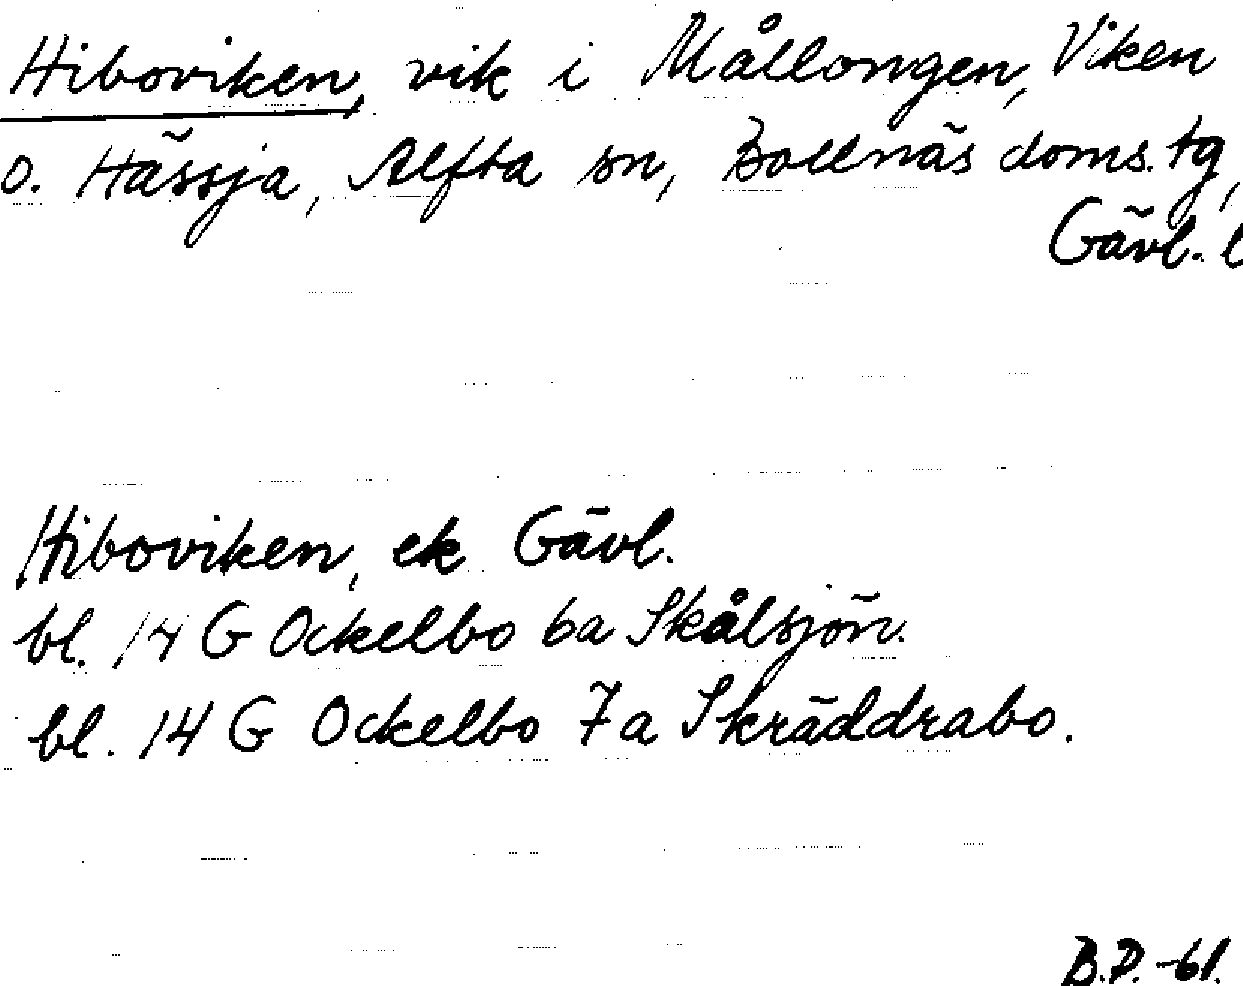 Hiboviken, vik i Mållongen, Viken
o. Hässja, Alfta sn, Bollnäs doms. tg,
Gävl. l
Hiboviken, ek Gävl.
bl. 14 G Ockelbo 6a Skålsjön.
bl. 14 G Ockelbo 7a Skräddrabo.
B.P. -61.